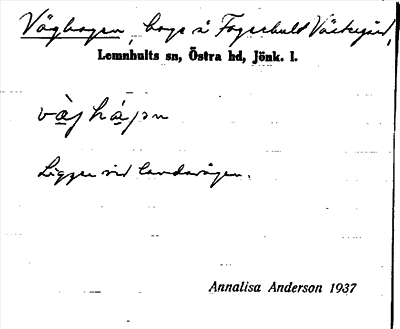 Väghagen, hage å Fagerhult Västergård,
Lemnhults sn, Östra hd, Jönk. l.
vä̀j há̀jən
Ligger vid landsvägen.
Annalisa Anderson 1937